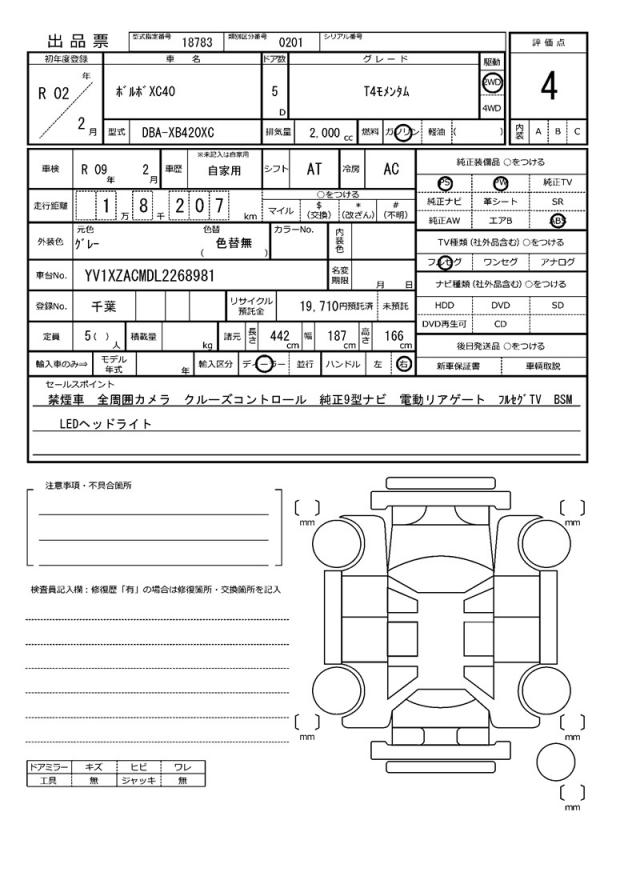 出品票 型式指定番号 18783 類別区分番号 0201 シリアル番号
評価点
初年度登録 車名 ドア数 グレード 駆動
R 02 年 2 月 ボルボXC40 5 D T4モメンタム 2WD 4WD 4
型式 DBA-XB420XC 排気量 2,000 cc 燃料 ガソリン 軽油 ( ) 内装 A B C
車検 R 09 年 2 月 車歴 ※未記入は自家用 自家用 シフト AT 冷房 AC
走行距離 1 万 8 千 2 0 7 km
○をつける
マイル $ (交換) * (改ざん) # (不明)
外装色 元色 グレー 色替 ( 色替無 ) カラーNo. 内装色
車台No. YV1XZACMDL2268981 名変期限 月 日
登録No. 千葉 リサイクル預託金 19,710円預託済 未預託
定員 5( ) 人 積載量 kg 諸元 長さ 442 cm 幅 187 cm 高さ 166 cm
輸入車のみ⇒ モデル年式 年 輸入区分 ディーラー 並行 ハンドル 左 右
純正装備品 ○をつける
PS PW 純正TV
純正ナビ 革シート SR
純正AW エアB ABS
TV種類 (社外品含む) ○をつける
フルセグ ワンセグ アナログ
ナビ種類 (社外品含む) ○をつける
HDD DVD SD
DVD再生可 CD
後日発送品 ○をつける
新車保証書 車輌取説
セールスポイント
禁煙車 全周囲カメラ クルーズコントロール 純正9型ナビ 電動リアゲート フルセグTV BSM
LEDヘッドライト
注意事項・不具合箇所
検査員記入欄：修復歴「有」の場合は修復箇所・交換箇所を記入
mm mm
mm mm
mm
ドアミラー キズ ヒビ ワレ
工具 無 ジャッキ 無